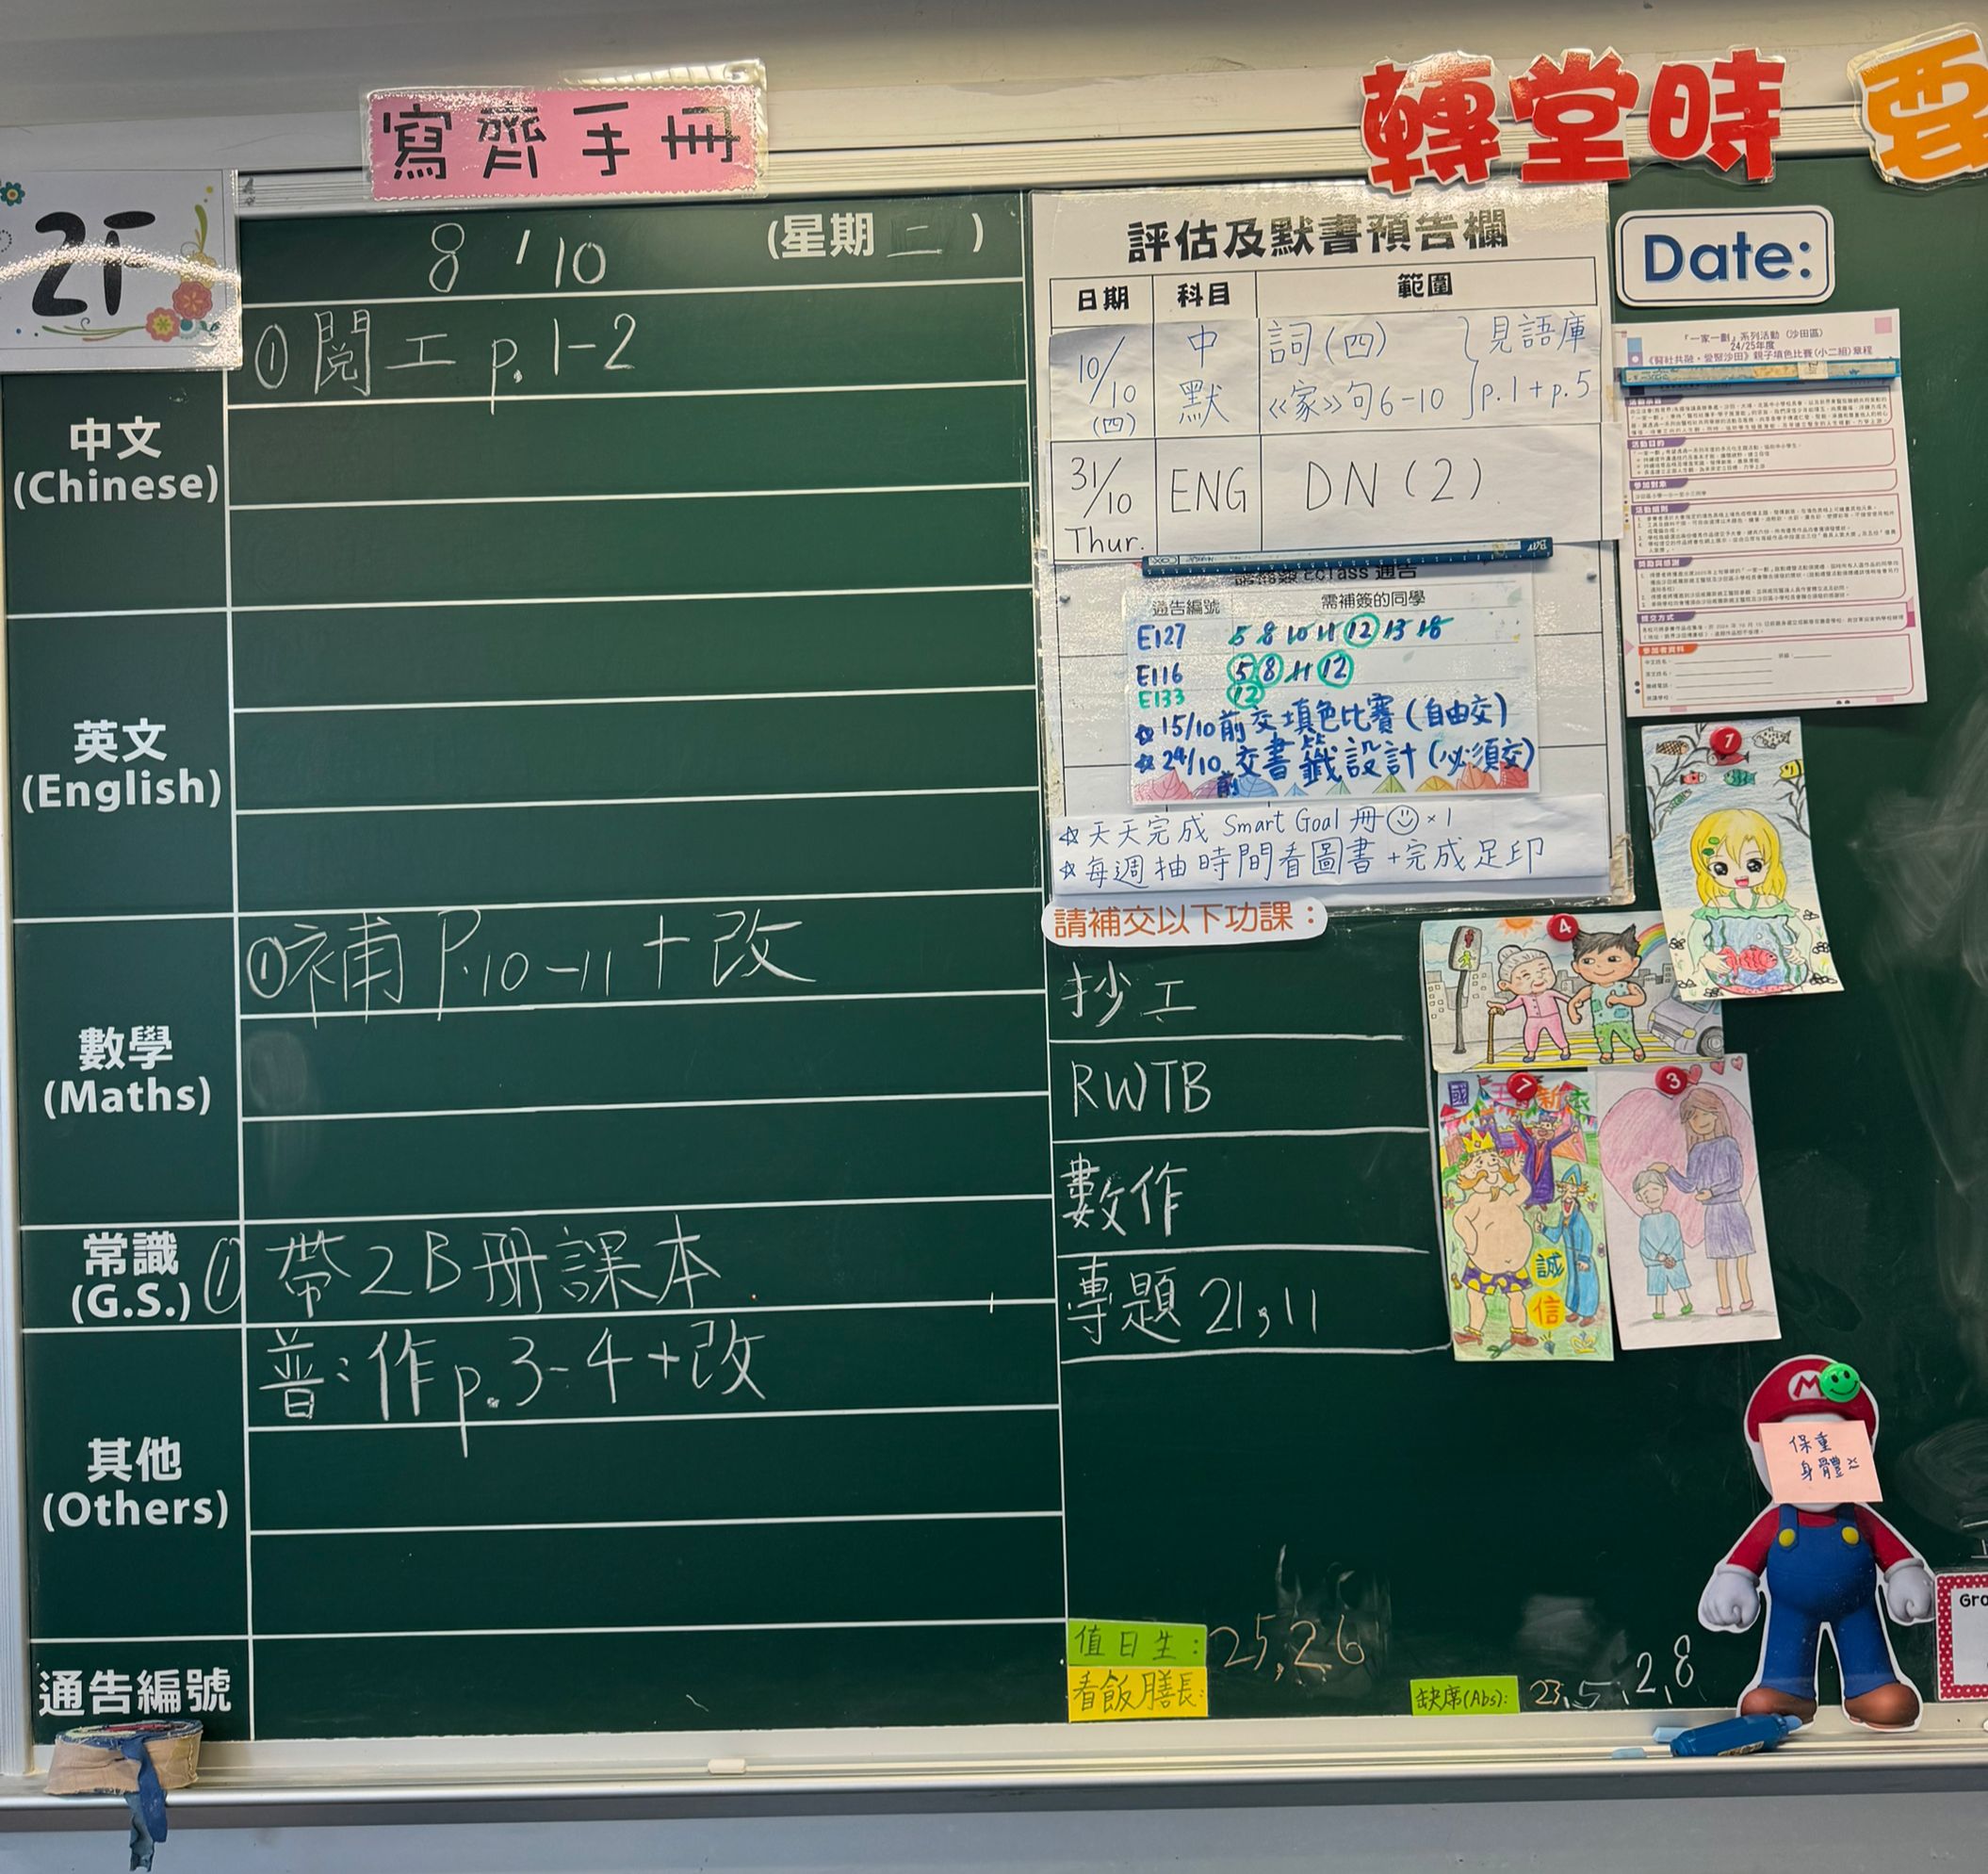 寫齊手冊
轉堂時 要
2F
8 / 10 (星期二)
中文
(Chinese)
①閱工 p.1-2
英文
(English)
數學
(Maths)
①補 P.10-11+改
常識
(G.S.)
① 帶2B冊課本
其他
(Others)
普:作p.3-4+改
通告編號
評估及默書預告欄
日期 科目 範圍
10/10 (四) 中默 詞(四) 《家》句6-10 } 見語庫 p.1+p.5
31/10 Thur. ENG DN (2)
eClass 通告
通告編號 需補簽的同學
E127 5 8 10 11 12 13 18
E116 5 8 11 12
E133 12
☆15/10前交填色比賽(自由交)
☆24/10前交書籤設計(必須交)
☆天天完成 Smart Goal 冊☺×1
☆每週抽時間看圖書+完成足印
請補交以下功課：
抄工
RWTB
數作
專題 21,11
值日生: 25,26
看飯膳長:
缺席(Abs): 23,5,2,8
Date:
「一家一劃」系列活動 (沙田區)
24/25年度
《醫社共融·愛醫沙田》親子填色比賽(小二組)章程
活動目的
參加對象
活動細則
獎勵與感謝
提交方式
參加者資料
1
4
7
3
國王新衣
誠
信
M
保重
身體
Gro